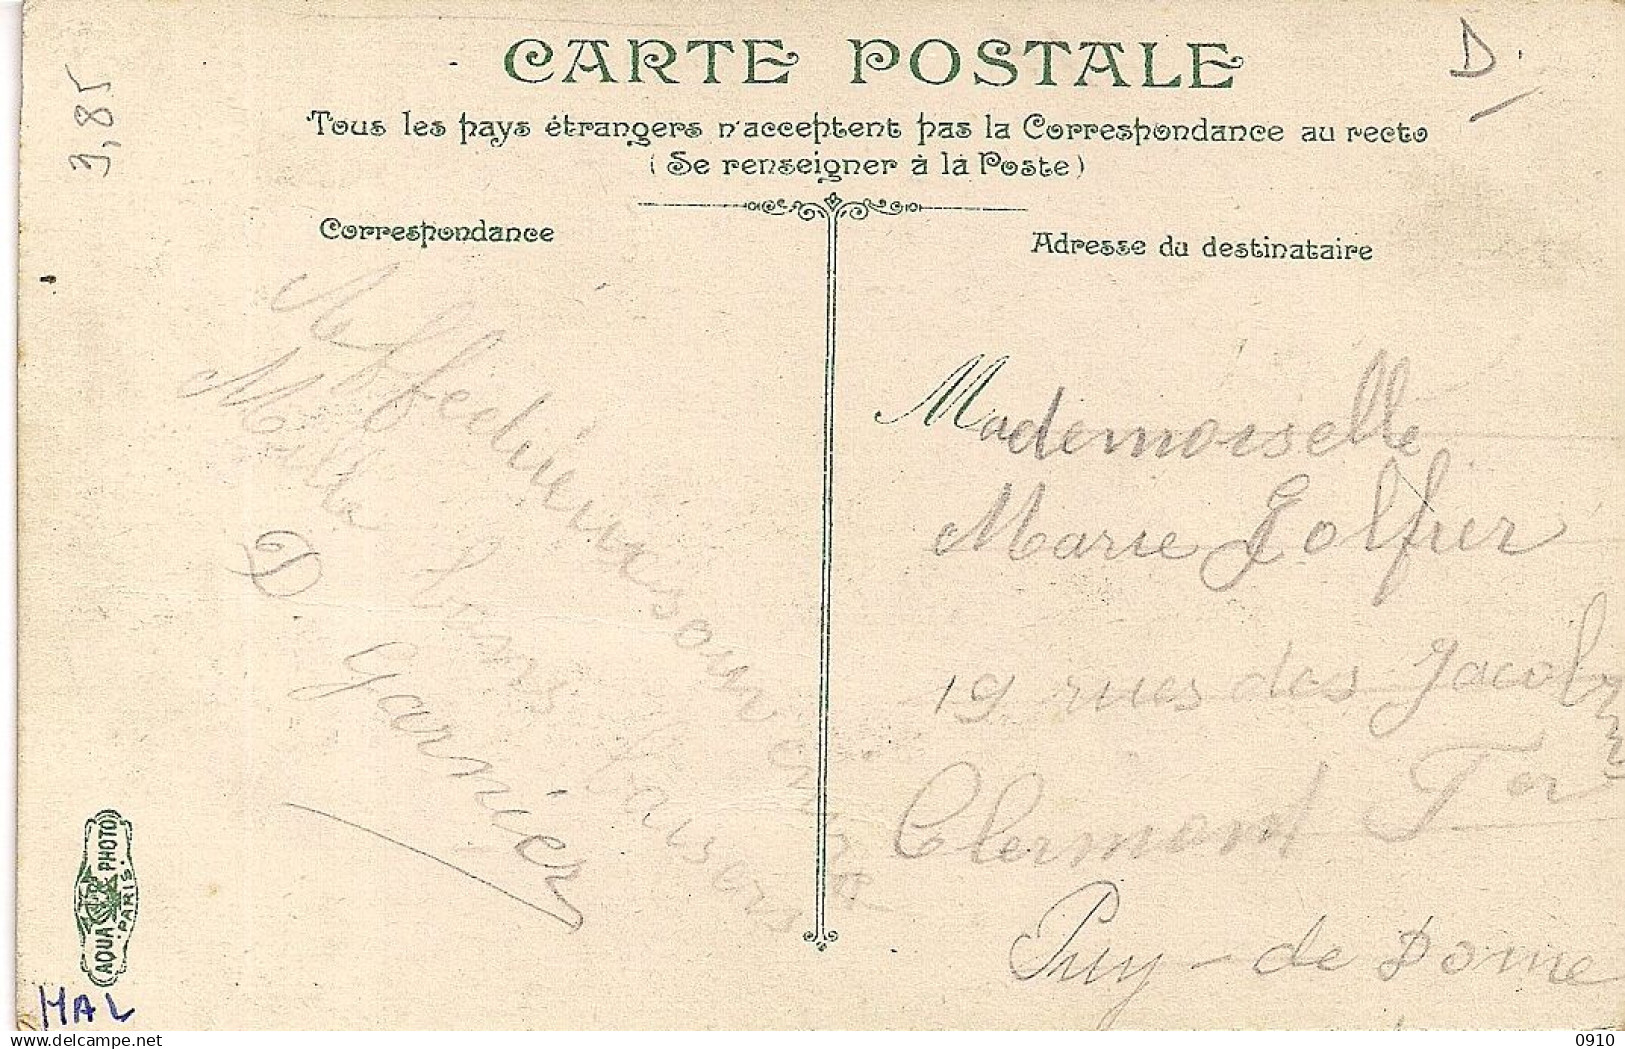 CARTE POSTALE
D.
3,85
Tous les pays étrangers n'acceptent pas la Correspondance au recto
(Se renseigner à la Poste)
Correspondance
Adresse du destinataire
Affectueuse
Mille bons baisers
D. Garnier
Mademoiselle
Marie Golfier
19 rues des Jacobins
Clermont Fer
Puy-de Dome
AQUA PHOTO
PARIS
HAL
delcampe.net
0910